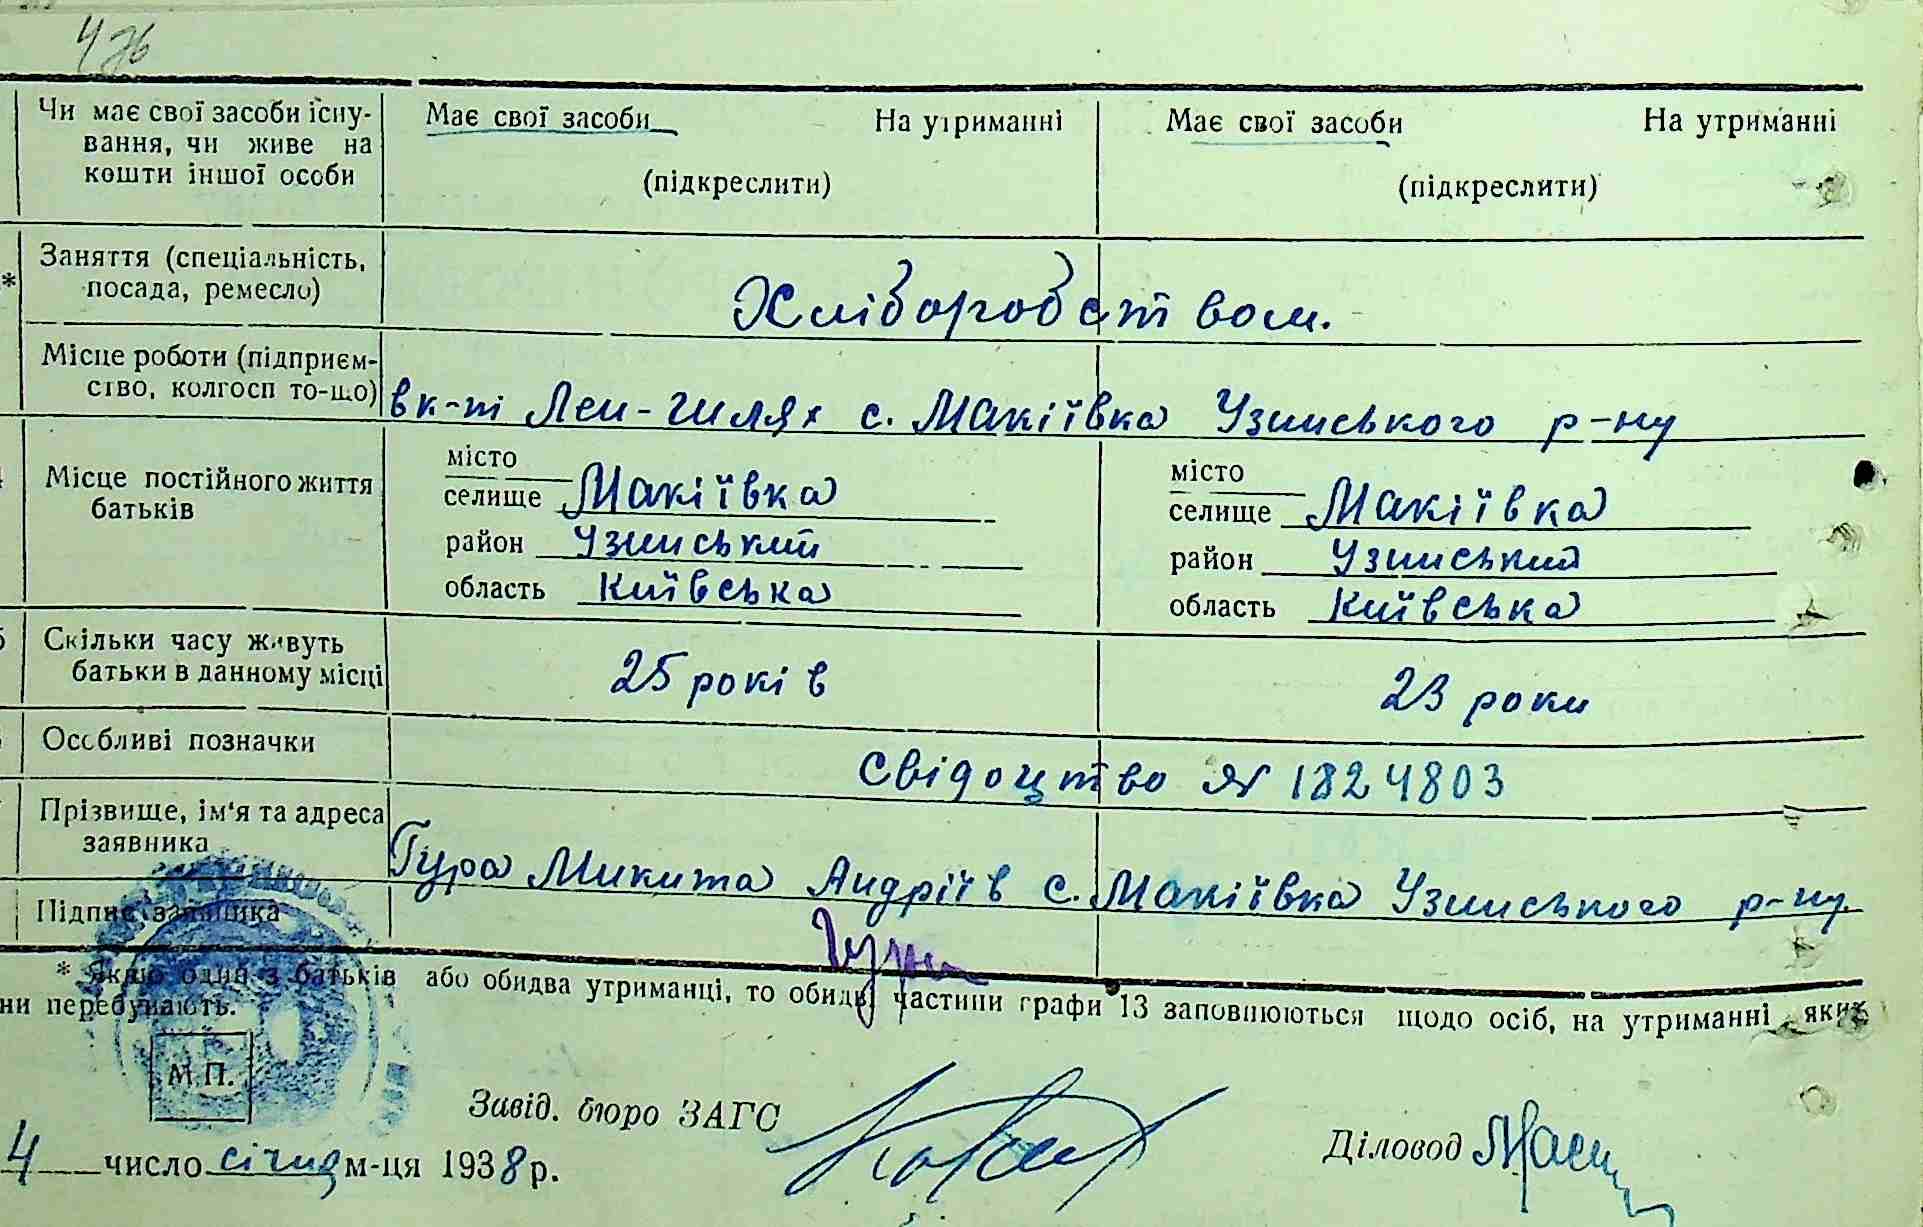 Чи має свої засоби існу-
вання, чи живе на
кошти іншої особи
Має свої засоби На утриманні
(підкреслити)
Має свої засоби На утриманні
(підкреслити)
* Заняття (спеціальність,
посада, ремесло)
Хліборобством.
Місце роботи (підприєм-
ство, колгосп то-що)
в к-пі Лен-шлях с. Макіївка Узинського р-ну
Місце постійного життя
батьків
місто
селище Макіївка
район Узинський
область Київська
місто
селище Макіївка
район Узинський
область Київська
Скільки часу живуть
батьки в данному місці
25 років
23 роки
Особливі позначки
Свідоцтво № 1824803
Прізвище, ім'я та адреса
заявника
Гура Микита Андріїв с. Макіївка Узинського р-ну.
Підпис заявника
* Якщо один з батьків або обидва утриманці, то обидві частини графи 13 заповнюються щодо осіб, на утриманні яких
ни перебувають.
М.П.
Завід. бюро ЗАГС
Діловод
4 число січня м-ця 1938 р.